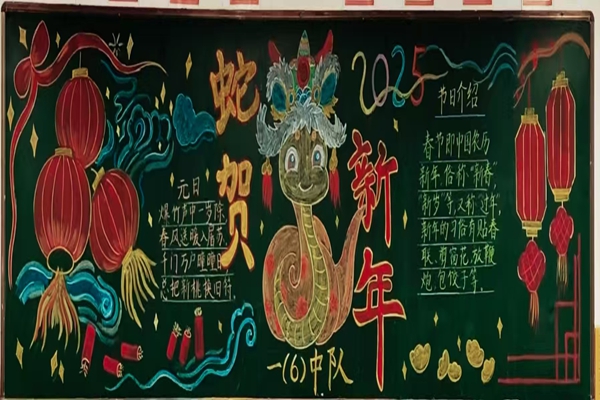 蛇贺
新年
2025
元日
爆竹声中一岁除,
春风送暖入屠苏。
千门万户曈曈日
总把新桃换旧符。
节日介绍
春节即中国农历
新年,俗称“新春”,
“新岁”等,又称“过年”,
新年的习俗有贴春
联、剪窗花、放鞭
炮、包饺子等。
一(6)中队